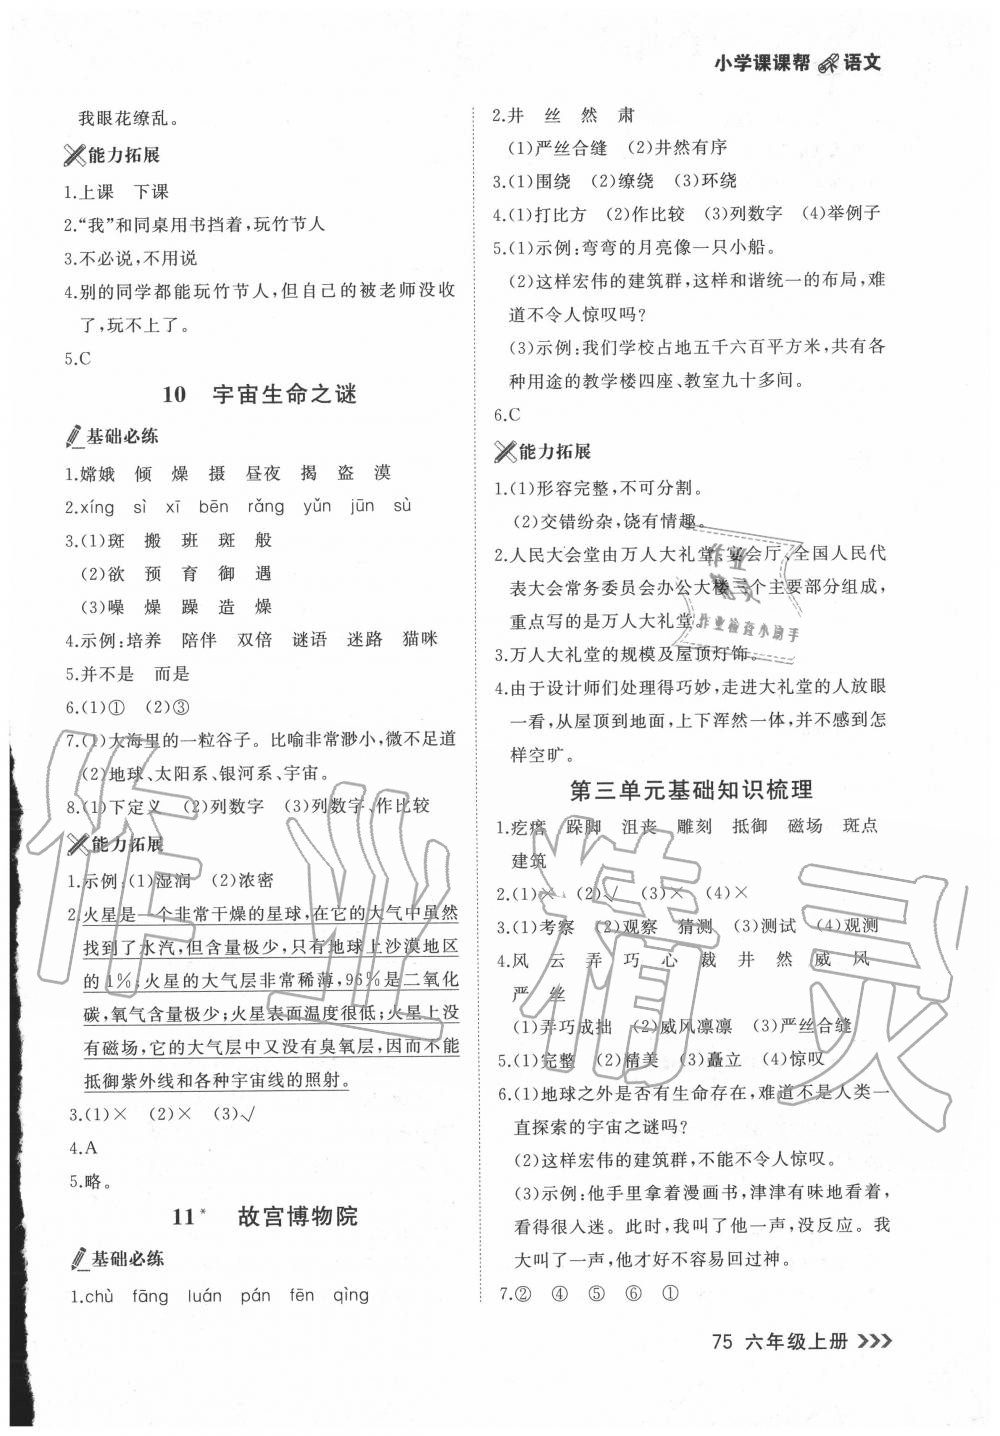 小学课课帮 语文
我眼花缭乱。
能力拓展
1.上课 下课
2.“我”和同桌用书挡着,玩竹节人
3.不必说,不用说
4.别的同学都能玩竹节人,但自己的被老师没收
了,玩不上了。
5.C
10 宇宙生命之谜
基础必练
1.嫦娥 倾 燥 摄 昼夜 揭 盗 漠
2.xíng sì xī bēn rǎng yǔn jūn sù
3.(1)斑 搬 班 斑 般
(2)欲 预 育 御 遇
(3)噪 燥 躁 造 燥
4.示例:培养 陪伴 双倍 谜语 迷路 猫咪
5.并不是 而是
6.(1)① (2)③
7.(1)大海里的一粒谷子。比喻非常渺小,微不足道
(2)地球、太阳系、银河系、宇宙。
8.(1)下定义 (2)列数字 (3)列数字、作比较
能力拓展
1.示例:(1)湿润 (2)浓密
2.火星是一个非常干燥的星球,在它的大气中虽然
找到了水汽,但含量极少,只有地球上沙漠地区
的1%;火星的大气层非常稀薄,96%是二氧化
碳,氧气含量极少;火星表面温度很低;火星上没
有磁场,它的大气层中又没有臭氧层,因而不能
抵御紫外线和各种宇宙线的照射。
3.(1)× (2)× (3)√
4.A
5.略。
11* 故宫博物院
基础必练
1.chù fāng luán pán fēn qìng
2.井 丝 然 肃
(1)严丝合缝 (2)井然有序
3.(1)围绕 (2)缭绕 (3)环绕
4.(1)打比方 (2)作比较 (3)列数字 (4)举例子
5.(1)示例:弯弯的月亮像一只小船。
(2)这样宏伟的建筑群,这样和谐统一的布局,难
道不令人惊叹吗?
(3)示例:我们学校占地五千六百平方米,共有各
种用途的教学楼四座、教室九十多间。
6.C
能力拓展
1.(1)形容完整,不可分割。
(2)交错纷杂,饶有情趣。
2.人民大会堂由万人大礼堂、宴会厅、全国人民代
表大会常务委员会办公大楼三个主要部分组成,
重点写的是万人大礼堂
作业检查小助手
3.万人大礼堂的规模及屋顶灯饰。
4.由于设计师们处理得巧妙,走进大礼堂的人放眼
一看,从屋顶到地面,上下浑然一体,并不感到怎
样空旷。
第三单元基础知识梳理
1.疙瘩 跺脚 沮丧 雕刻 抵御 磁场 斑点
建筑
2.(1)× (2)√ (3)× (4)×
3.(1)考察 (2)观察 猜测 (3)测试 (4)观测
4.风 云 弄 巧 心 裁 井 然 威 风
严 丝
(1)弄巧成拙 (2)威风凛凛 (3)严丝合缝
5.(1)完整 (2)精美 (3)矗立 (4)惊叹
6.(1)地球之外是否有生命存在,难道不是人类一
直探索的宇宙之谜吗?
(2)这样宏伟的建筑群,不能不令人惊叹。
(3)示例:他手里拿着漫画书,津津有味地看着,
看得很入迷。此时,我叫了他一声,没反应。我
大叫了一声,他才好不容易回过神。
7.② ④ ⑤ ⑥ ①
作业精灵
75 六年级上册